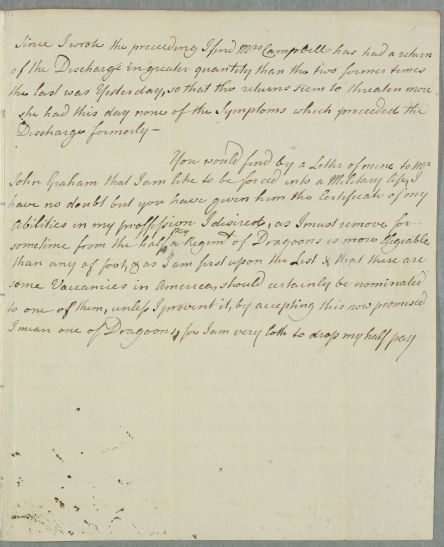 Since I wrote the preceding I find Mrs Campbell has had a return
of the Discharge in greater quantity than the two former times
the last was Yesterday, so that the returns seem to threaten more
she had this day none of the Symptoms which preceded the
Discharge formerly —
You would find by a Letter of mine to Mr
John Graham that I am like to be forced into a Military life, I
have no doubt but you have given him the Certificate of my
Abilities in my proffession I desired, as I must remove for
sometime from the half pay a Regimt of Dragoons is more Eligeable
than any of foot, & as I am first upon the List & that there are
some Vacancies in America, should certainly be nominated
to one of them, unless I prevent it, by accepting this now promised
I mean one of Dragoons, for I am very loth to drop my half pay